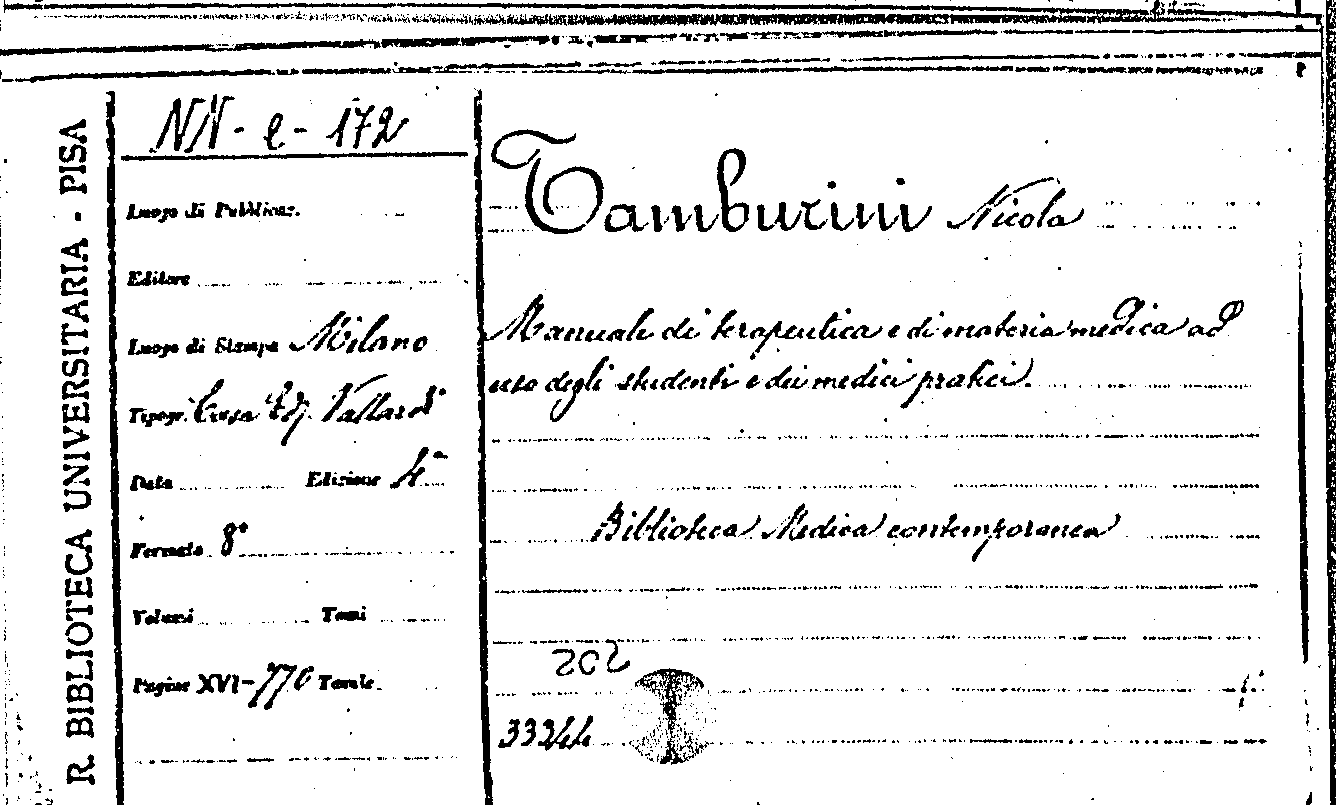 R. BIBLIOTECA UNIVERSITARIA - PISA
NN - e - 172
Luogo di Pubblicaz.
Editore
Luogo di Stampa Milano
Tipogr. Casa Ed. Vallardi
Data Edizione 4ª
Formato 8°
Volumi Tomi
Pagine XVI-770 Tavole
Tamburini Nicola
Manuale di terapeutica e di materia medica ad
uso degli studenti e dei medici pratici.
Biblioteca Medica contemporanea
202
33344